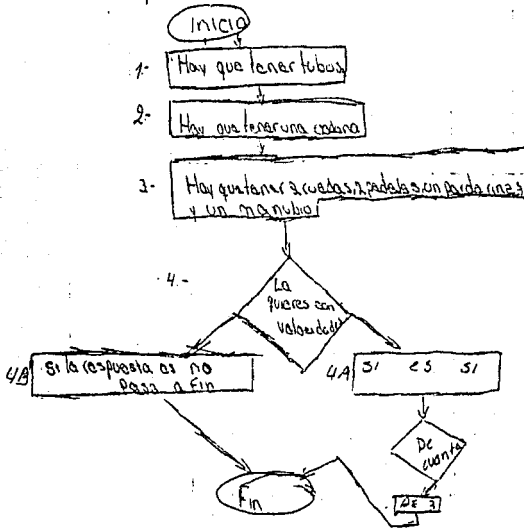 Inicio
1.- Hay que tener tubos
2.- Hay que tener una cadena
3.- Hay que tener 2 ruedas, 2 pedales, un par de
y un manubrio
4.-
La
quieres con
velocidades
4B Si la respuesta es no
Pasa a Fin
4A Si es si
De
cuanta
Fin